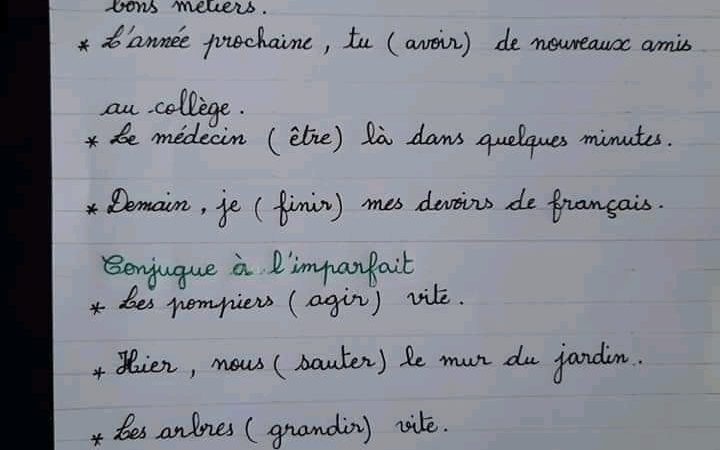 bons métiers.
* L'année prochaine, tu (avoir) de nouveaux amis
au collège.
* Le médecin (être) là dans quelques minutes.
* Demain, je (finir) mes devoirs de français.
Conjugue à l'imparfait
* Les pompiers (agir) vite.
* Hier, nous (sauter) le mur du jardin.
* Les arbres (grandir) vite.